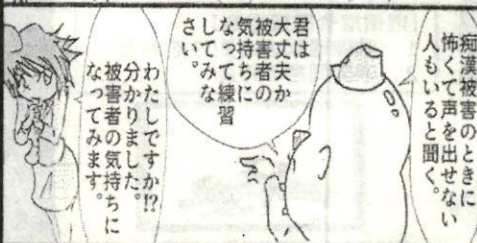 痴漢被害のときに
怖くて声を出せない
人もいると聞く。
君は
大丈夫か
被害者の
気持ちに
なって練習
してみな
さい。
わたしですか!?
分かりました。
被害者の気持ちに
なってみます。